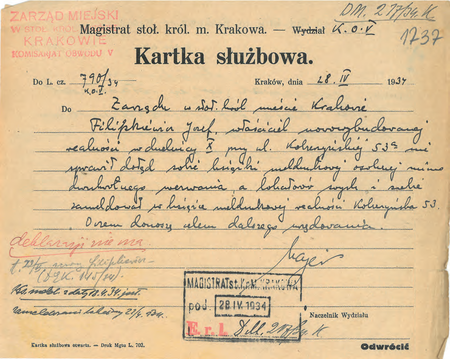 ZARZĄD MIEJSKI
W STOŁ. KRÓL.
KRAKOWIE
KOMISARJAT OBWODU V
D.M. 217/34. K
1737
Magistrat stoł. król. m. Krakowa. — Wydział K.O.V
Kartka służbowa.
Do L. cz. 790/34
K.O.V.
Kraków, dnia 28. IV 1934
Do Zarządu w stoł. król. mieście Krakowie
Filipkiewicz Józef, właściciel nowozbudowanej
realności w dzielnicy X przy ul. 53a nie
sprawił dotąd sobie książki meldunkowej osobnej mimo
dwukrotnego wezwania, a lokatorów swych i siebie
zameldował w książce meldunkowej realności 53.
O czem donoszę celem dalszego urzędowania.
deklaracji nie ma
MAGISTRAT st. kr. M. KRAKOWA
pod. 28. IV. 1934
D.M. 217/34 K
Naczelnik Wydziału
Kartka służbowa otwarta. — Druk Mgtu L. 702.
Odwrócić